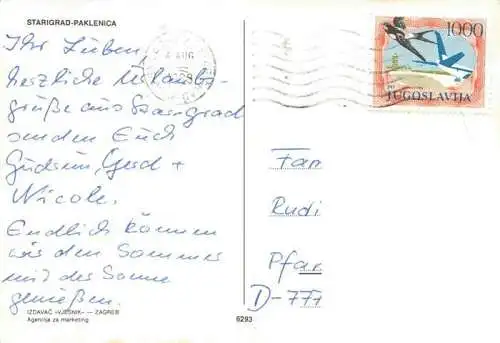 STARIGRAD-PAKLENICA
Ihr Lieben,
herzliche Urlaubs-
grüße aus Starigrad
senden Euch
Gudrun, Gerd +
Nicole.
Endlich können
wir den Sommer
mit der Sonne
genießen.
IZDAVAČ »VJESNIK« — ZAGREB
Agencija za marketing
6293
1000
JUGOSLAVIJA
Fam
Rudi
Pfar
D-777